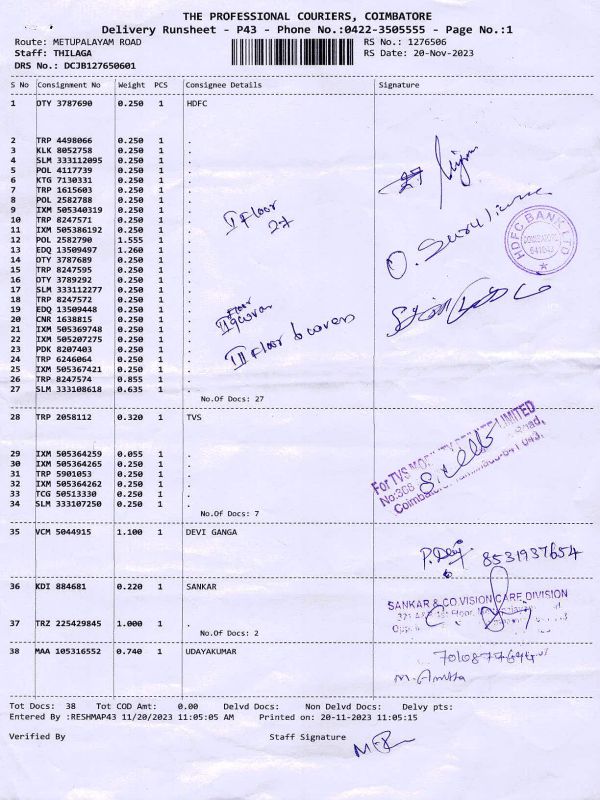 THE PROFESSIONAL COURIERS, COIMBATORE
Delivery Runsheet - P43 - Phone No.:0422-3505555 - Page No.:1
Route: METUPALAYAM ROAD RS No.: 1276506
Staff: THILAGA RS Date: 20-Nov-2023
DRS No.: DCJB127650601
S No Consignment No Weight PCS Consignee Details Signature
1 OTY 3787690 0.250 1 HDFC
2 TRP 4498066 0.250 1 .
3 KLK 8052758 0.250 1 .
4 SLM 333112095 0.250 1 .
5 POL 4117739 0.250 1 .
6 KTG 7130331 0.250 1 .
7 TRP 1615603 0.250 1 .
8 POL 2582788 0.250 1 .
9 IXM 505340319 0.250 1 .
10 TRP 8247571 0.250 1 .
11 IXM 505386192 0.250 1 .
12 POL 2582790 1.555 1 .
13 EDQ 13509497 1.260 1 .
14 OTY 3787689 0.250 1 .
15 TRP 8247595 0.250 1 .
16 OTY 3789292 0.250 1 .
17 SLM 333112277 0.250 1 .
18 TRP 8247572 0.250 1 .
19 EDQ 13509448 0.250 1 .
20 CNR 1638815 0.250 1 .
21 IXM 505369748 0.250 1 .
22 IXM 505207275 0.250 1 .
23 PDK 8207403 0.250 1 .
24 TRP 6246064 0.250 1 .
25 IXM 505367421 0.250 1 .
26 TRP 8247574 0.855 1 .
27 SLM 333108618 0.635 1 .
I Floor
27
27
HDFC BANK LTD
COIMBATORE
641043
II Floor
III Floor 6 covers
No.Of Docs: 27
28 TRP 2058112 0.320 1 TVS
29 IXM 505364259 0.055 1 .
30 IXM 505364265 0.250 1 .
31 TRP 5901053 0.250 1 .
32 IXM 505364262 0.250 1 .
33 TCG 50513330 0.250 1 .
34 SLM 333107250 0.250 1 .
No.Of Docs: 7
For TVS LIMITED
No:368 Road,
641 043.
35 VCM 5044915 1.100 1 DEVI GANGA
P. Devi 8531937654
36 KDI 884681 0.220 1 SANKAR
SANKAR & CO VISION CARE DIVISION
37 TRZ 225429845 1.000 1 .
No.Of Docs: 2
38 MAA 105316552 0.740 1 UDAYAKUMAR
Tot Docs: 38 Tot COD Amt: 0.00 Delvd Docs: Non Delvd Docs: Delvy pts:
Entered By :RESHMAP43 11/20/2023 11:05:05 AM Printed on: 20-11-2023 11:05:15
Verified By Staff Signature